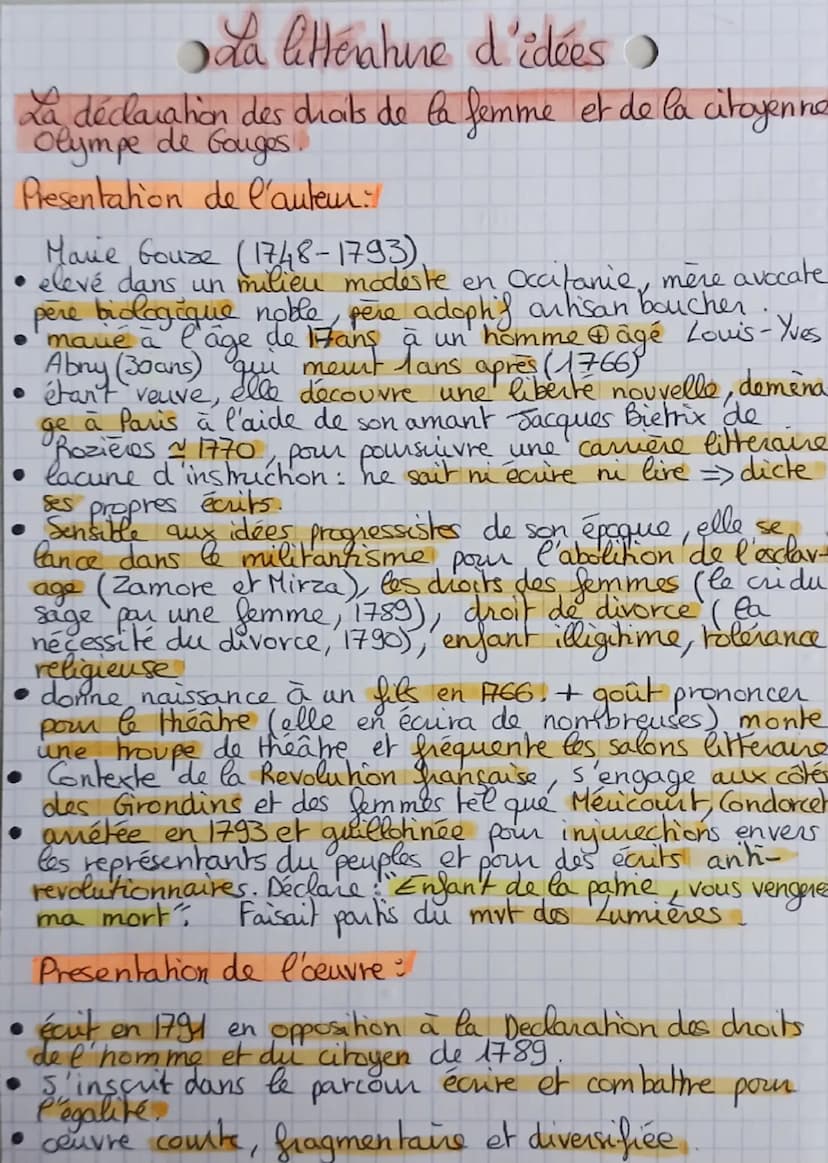 La littérature d'idées
La déclaration des droits de la femme et de la citoyenne
Olympe de Gouges.
Presentation de l'auteur:
Marie Gouze (1748-1793)
• elevé dans un milieu modeste en Occitanie, mère avocate
père biologique noble, père adoptif artisan boucher.
• marié à l'âge de 17ans à un homme ⊕ âgé Louis-Yves
Abry (30ans) qui meurt 1ans après (1766)
• étant veuve, elle découvre une liberté nouvelle, deména
ge à Paris à l'aide de son amant Jacques Bietrix de
Rozières ≃ 1770, pour poursuivre une carrière litteraire
• lacune d'instruction: ne sait ni écrire ni lire => dicte
ses propres écrits.
• Sensible aux idées progressistes de son époque, elle se
lance dans le militantisme pour l'abolition de l'esclav-
age (Zamore et Mirza), les droits des femmes (le cri du
sage par une femme, 1789), droit de divorce (la
nécessité du divorce, 1790), enfant illigitime, tolérance
religieuse
• donne naissance à un fils en 1766! + goût prononcer
pour le théâtre (elle en écrira de nombreuses) monte
une troupe de théâtre et fréquente les salons litteraire
• Contexte de la Revolution française, s'engage aux côtés
des Girondins et des femmes tel que Méricourt, Condorcet
• arrêtée en 1793 et guillotinée pour injurections envers
les représentants du peuples et pour des écrits anti-
revolutionnaires. Déclare: "Enfant de la patrie, vous vengere
ma mort". Faisait partis du mvt des Lumières.
Presentation de l'oeuvre:
• écrit en 1791 en opposition à la Declaration des droits
de l'homme et du citoyen de 1789.
• S'inscrit dans le parcour écrire et combattre pour
l'égalité.
• œuvre courte, fragmentaire et diversifiée.